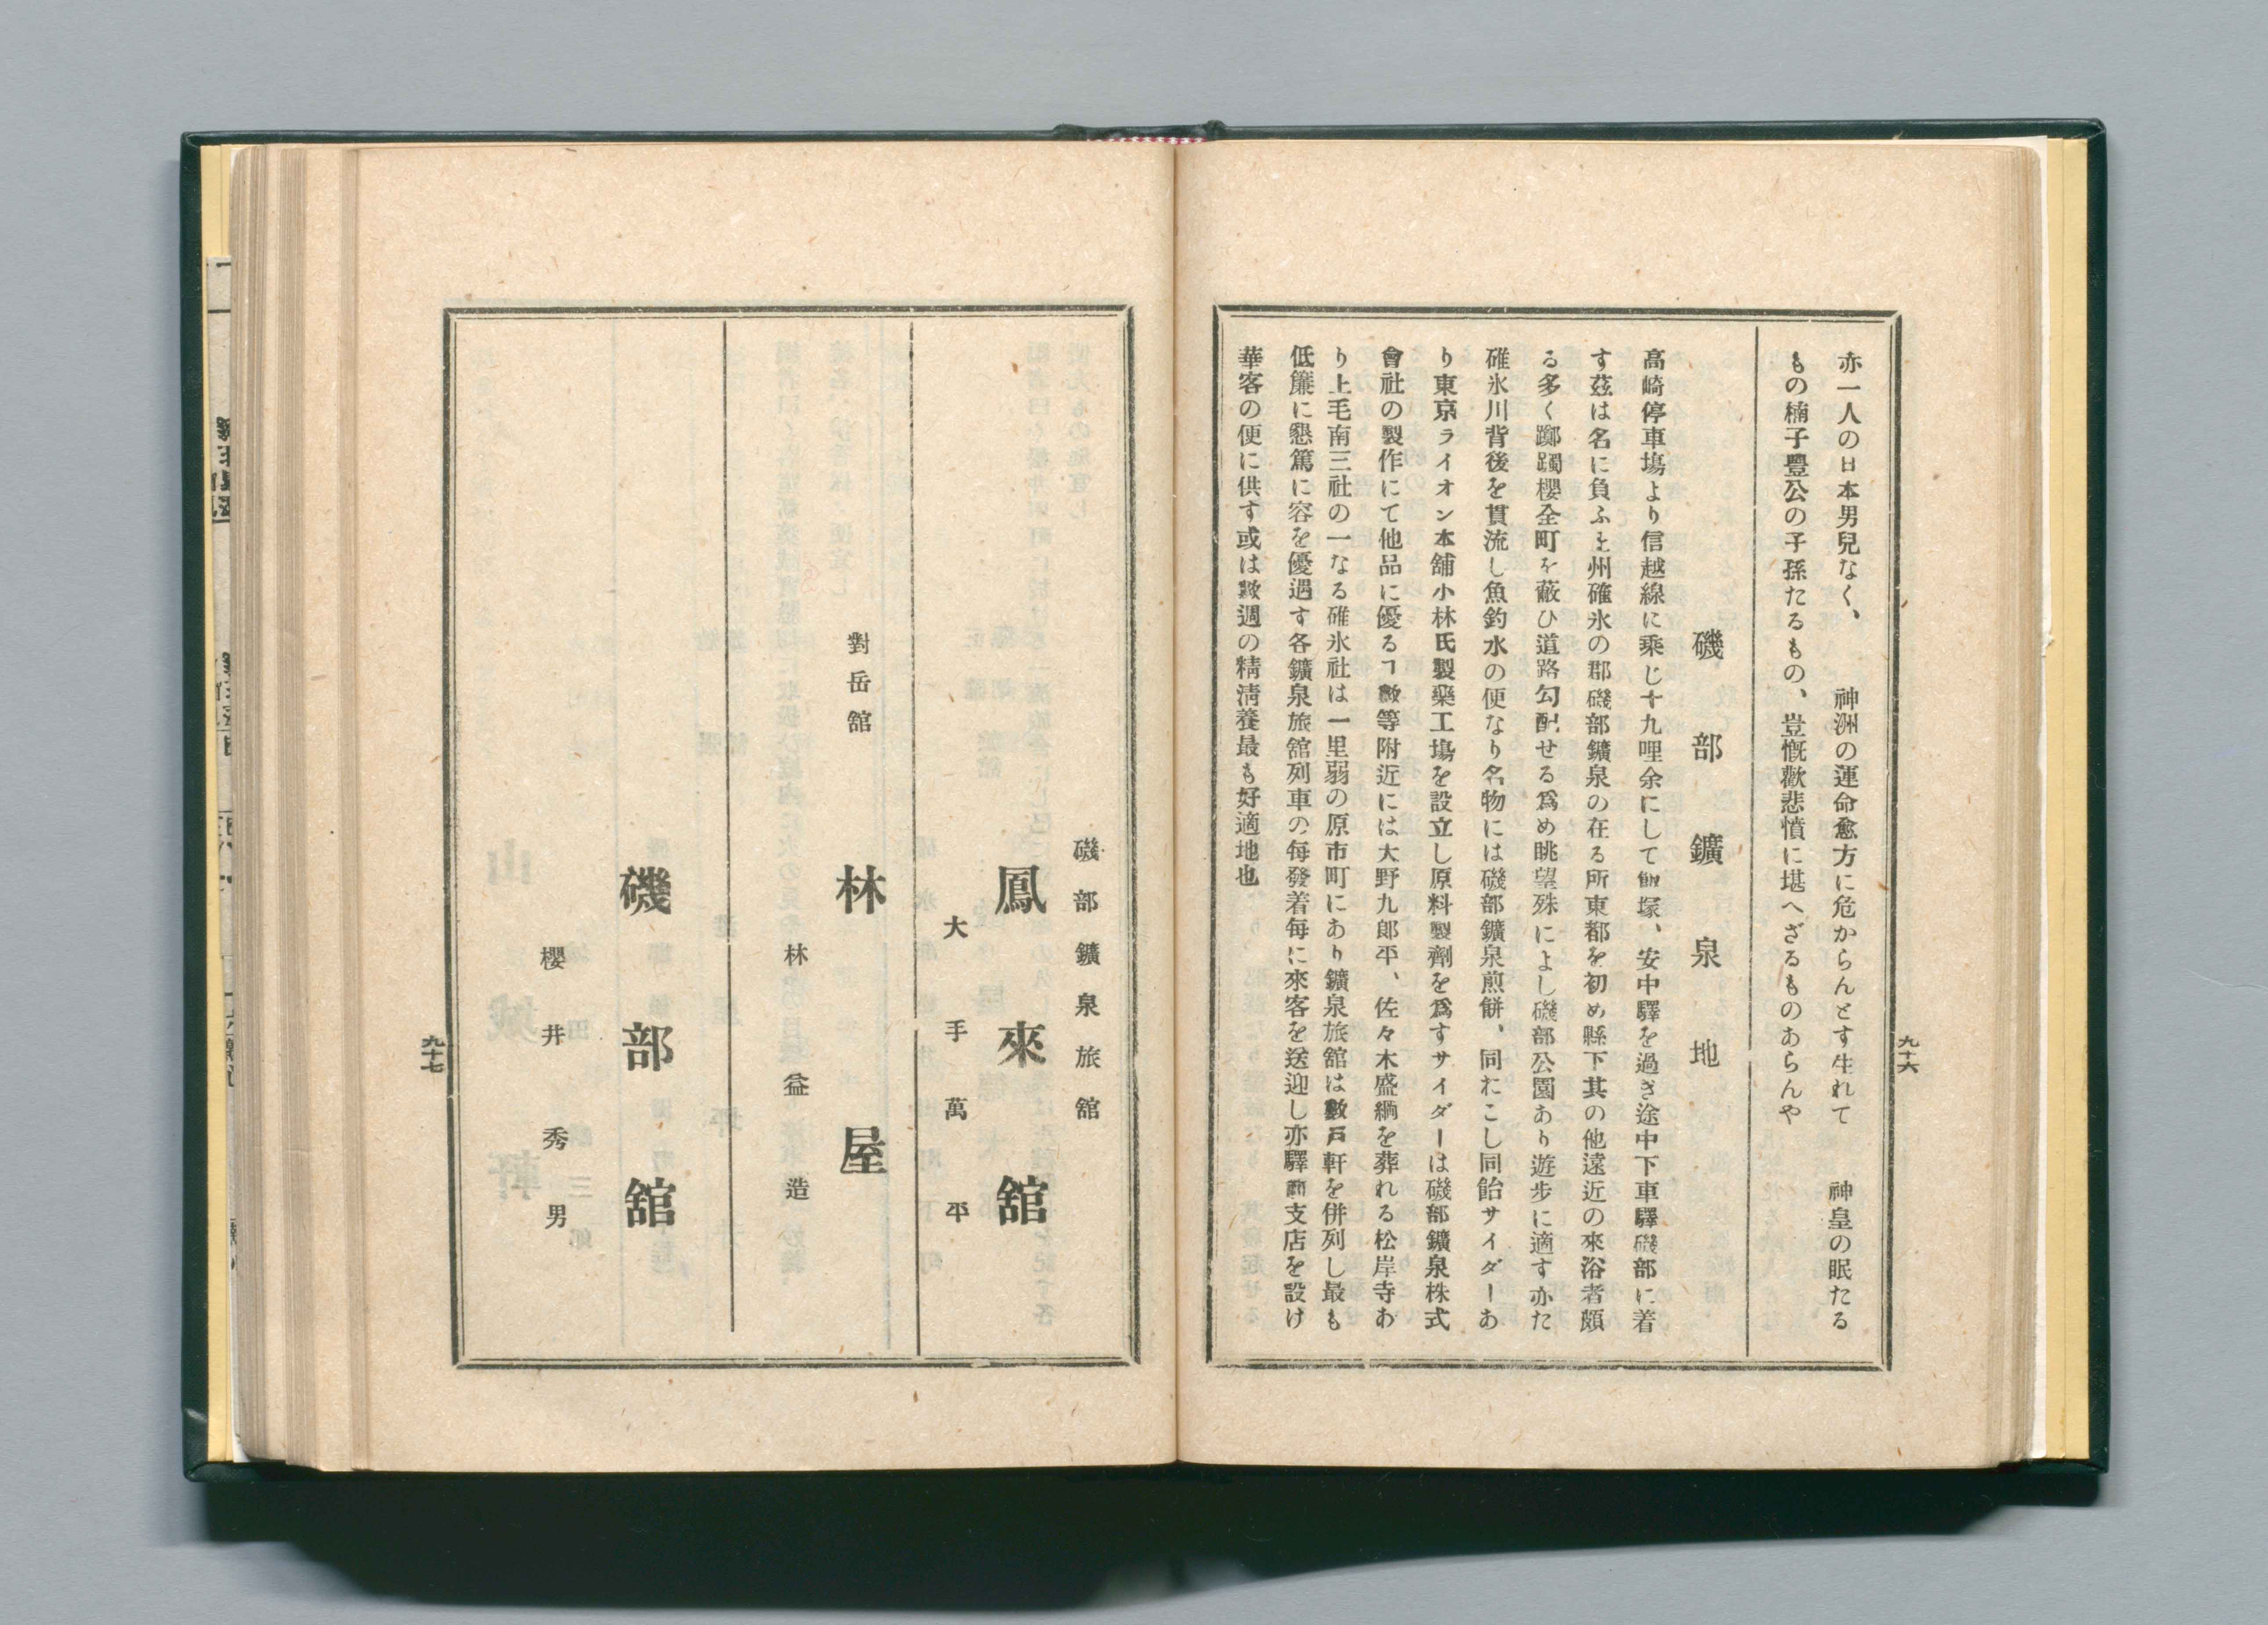 九十六
亦一人の日本男兒なく、　神洲の運命愈方に危からんとす生れて　神皇の眠たる
もの楠子豐公の子孫たるもの、豈慨歡悲憤に堪へざるものあらんや
磯部鑛泉地
高崎停車塲より信越線に乘じ十九哩余にして飯塚、安中驛を過ぎ途中下車驛磯部に着
す茲は名に負ふ上州碓氷の郡磯部鑛泉の在る所東都を初め縣下其の他遠近の來浴者頗
る多く躑躅櫻全町を蔽ひ道路勾配せる爲め眺望殊によし磯部公園あり遊步に適す亦た
碓氷川背後を貫流し魚釣水の便なり名物には磯部鑛泉煎餅、同たこし同飴サイダーあ
り東京ライオン本舖小林氏製藥工塲を設立し原料製劑を爲すサイダーは磯部鑛泉株式
會社の製作にて他品に優るヿ數等附近には大野九郎平、佐々木盛綱を葬れる松岸寺あ
り上毛南三社の一なる碓氷社は一里弱の原市町にあり鑛泉旅舘は數戸軒を併列し最も
低簾に懇篤に容を優遇す各鑛泉旅舘列車の每發着每に來客を送迎し亦驛前支店を設け
華客の便に供す或は數週の精淸養最も好適地也
磯部鑛泉旅舘
鳳來舘
大手萬平
對岳舘
林屋
林益造
磯部舘
櫻井秀男
九十七